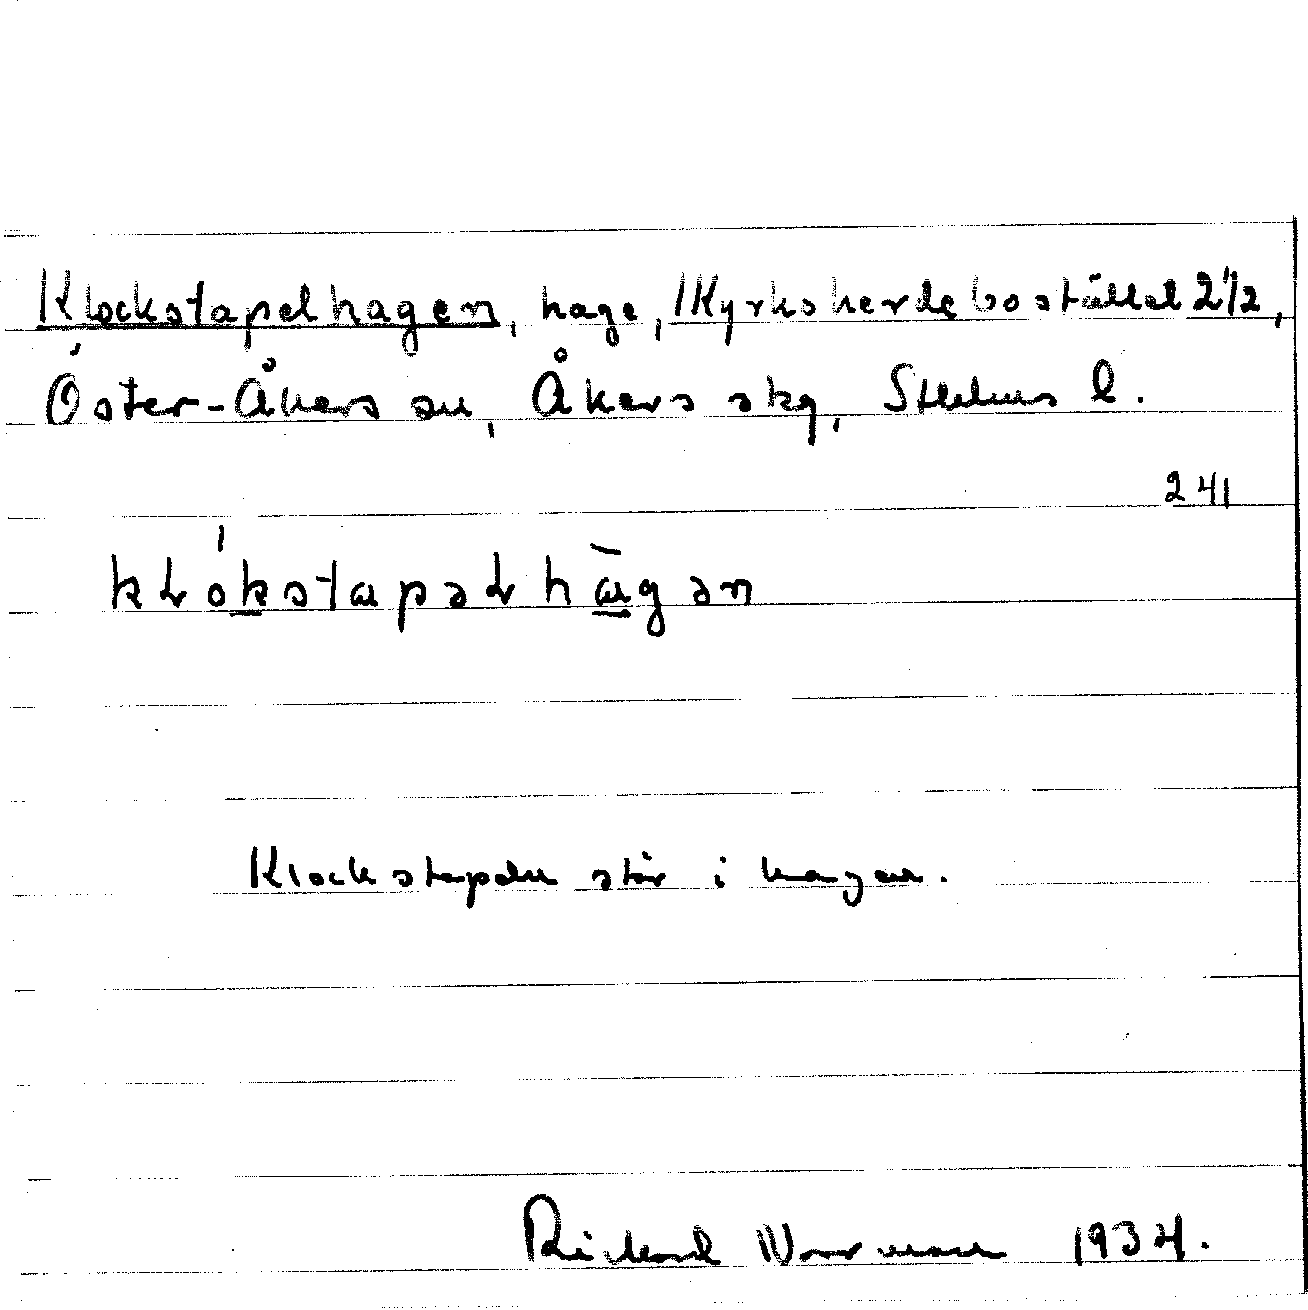 Klockstapelhagen, hage, Kyrkoherdebostället 2 1/2,
Öster-Åkers sn, Åkers skg, Sthlms l.
241
kɫók̠stapəɫhà̠gən
Klockstapeln står i hagen.
Rickard Norrman 1934.